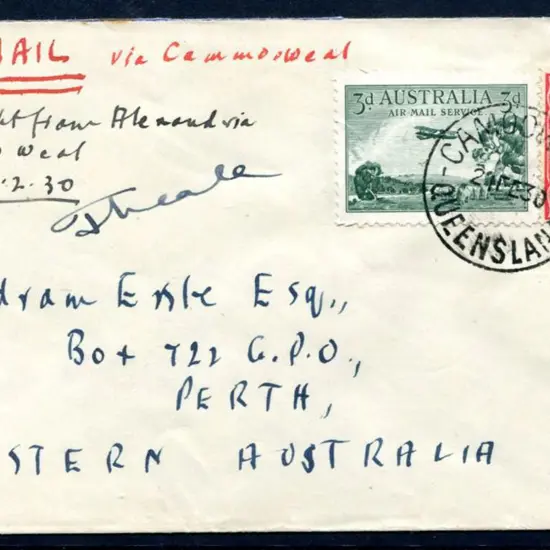 AIL via Cammonweal
ht from Alexandria
weal
.2.30
3d AUSTRALIA 3d
AIR MAIL SERVICE
CAMOOW
FE30
QUEENSLAN
dram Esq.,
Box 722 G.P.O.,
PERTH,
STERN AUSTRALIA